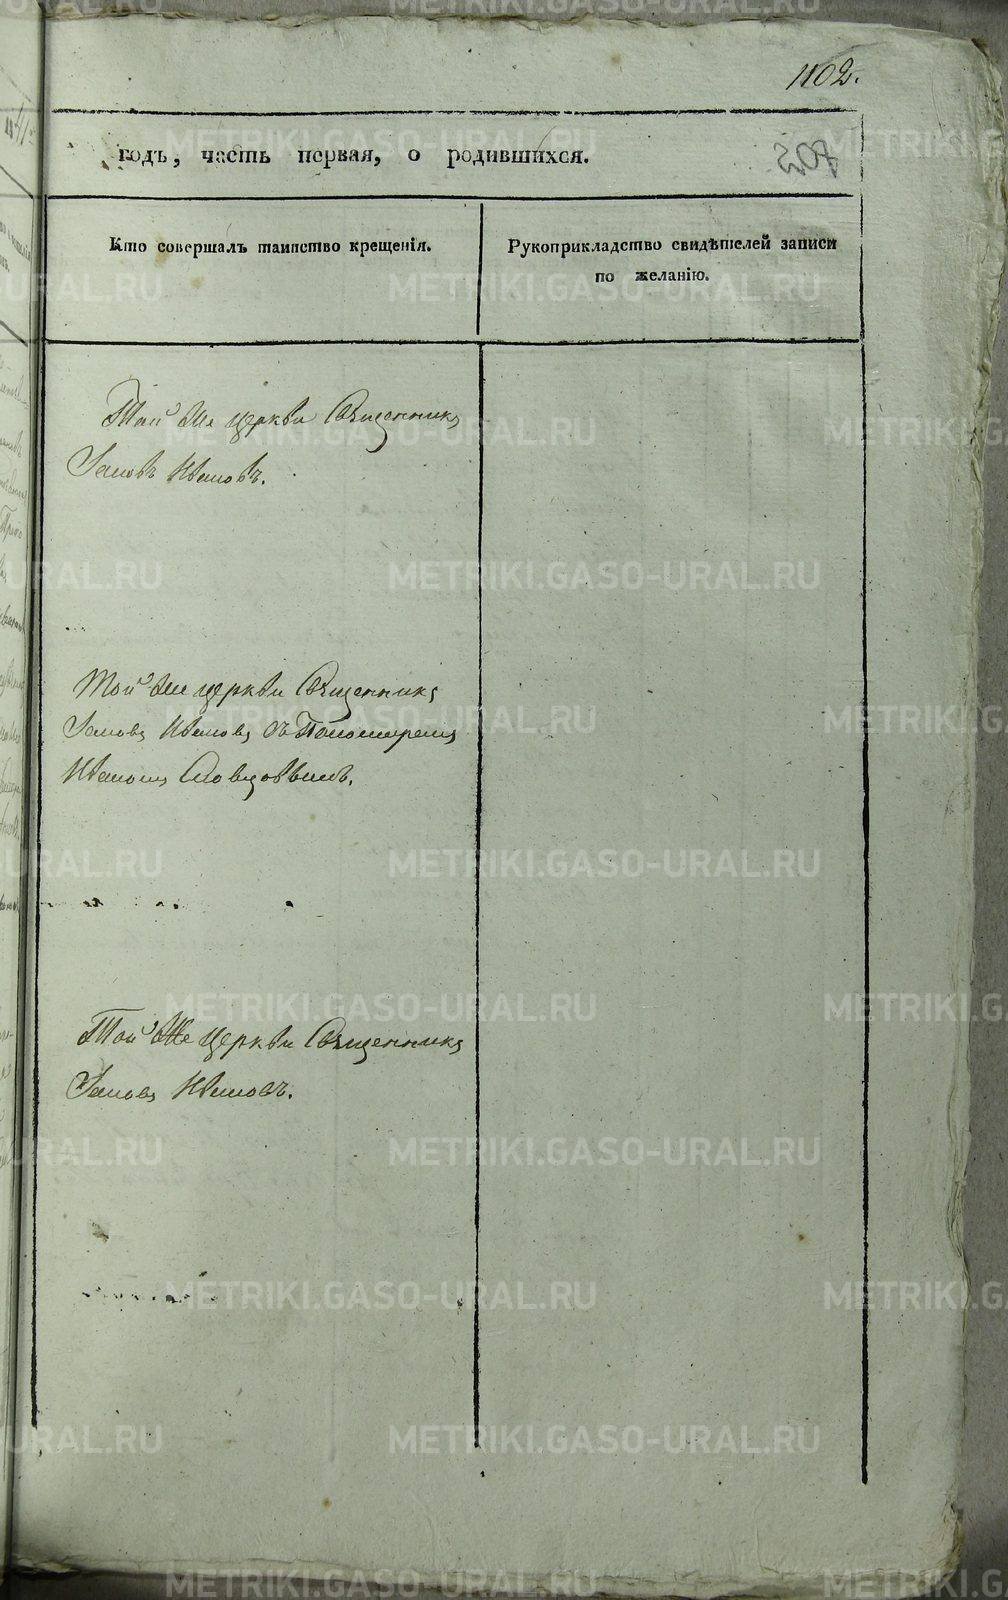 1102.
годъ, часть первая, о родившихся.
Кто совершалъ таинство крещенія.
Рукоприкладство свидѣтелей записи
по желанію.
Той же церкви Священникъ
Іаковъ Ивановъ.
Той же церкви Священникъ
Іаковъ Ивановъ съ Пономаремъ
Иваномъ Словцовымъ.
Той же церкви Священникъ
Іаковъ Ивановъ.
METRIKI.GASO-URAL.RU